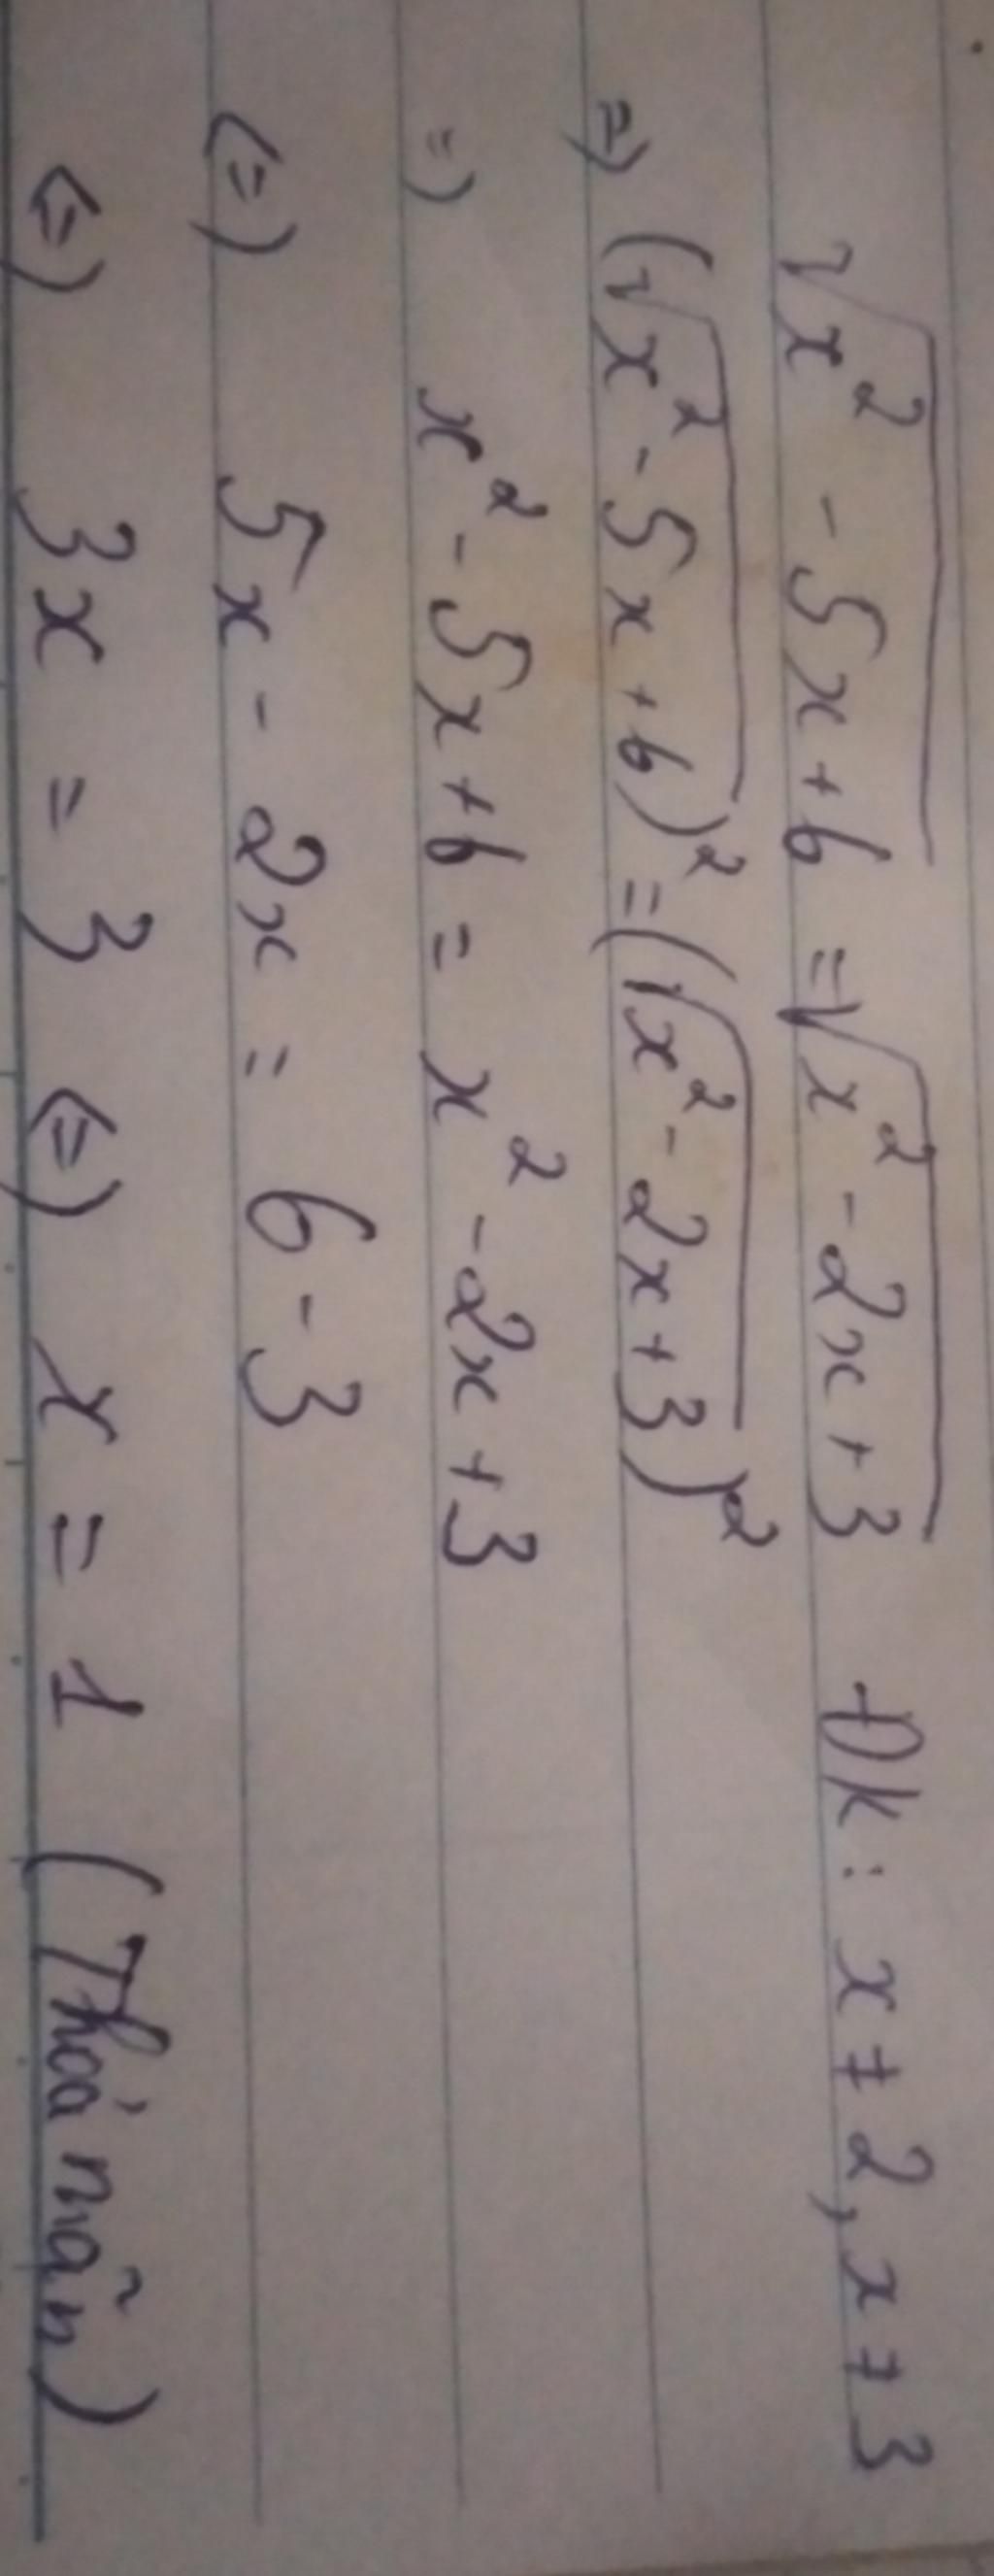 √(x² - 5x + 6) = √(x² - 2x + 3) Đk: x ≠ 2, x ≠ 3
=) (√(x² - 5x + 6))² = (√(x² - 2x + 3))²
=) x² - 5x + 6 = x² - 2x + 3
(=) 5x - 2x = 6 - 3
(=) 3x = 3 (=) x = 1 (Thoả mãn)